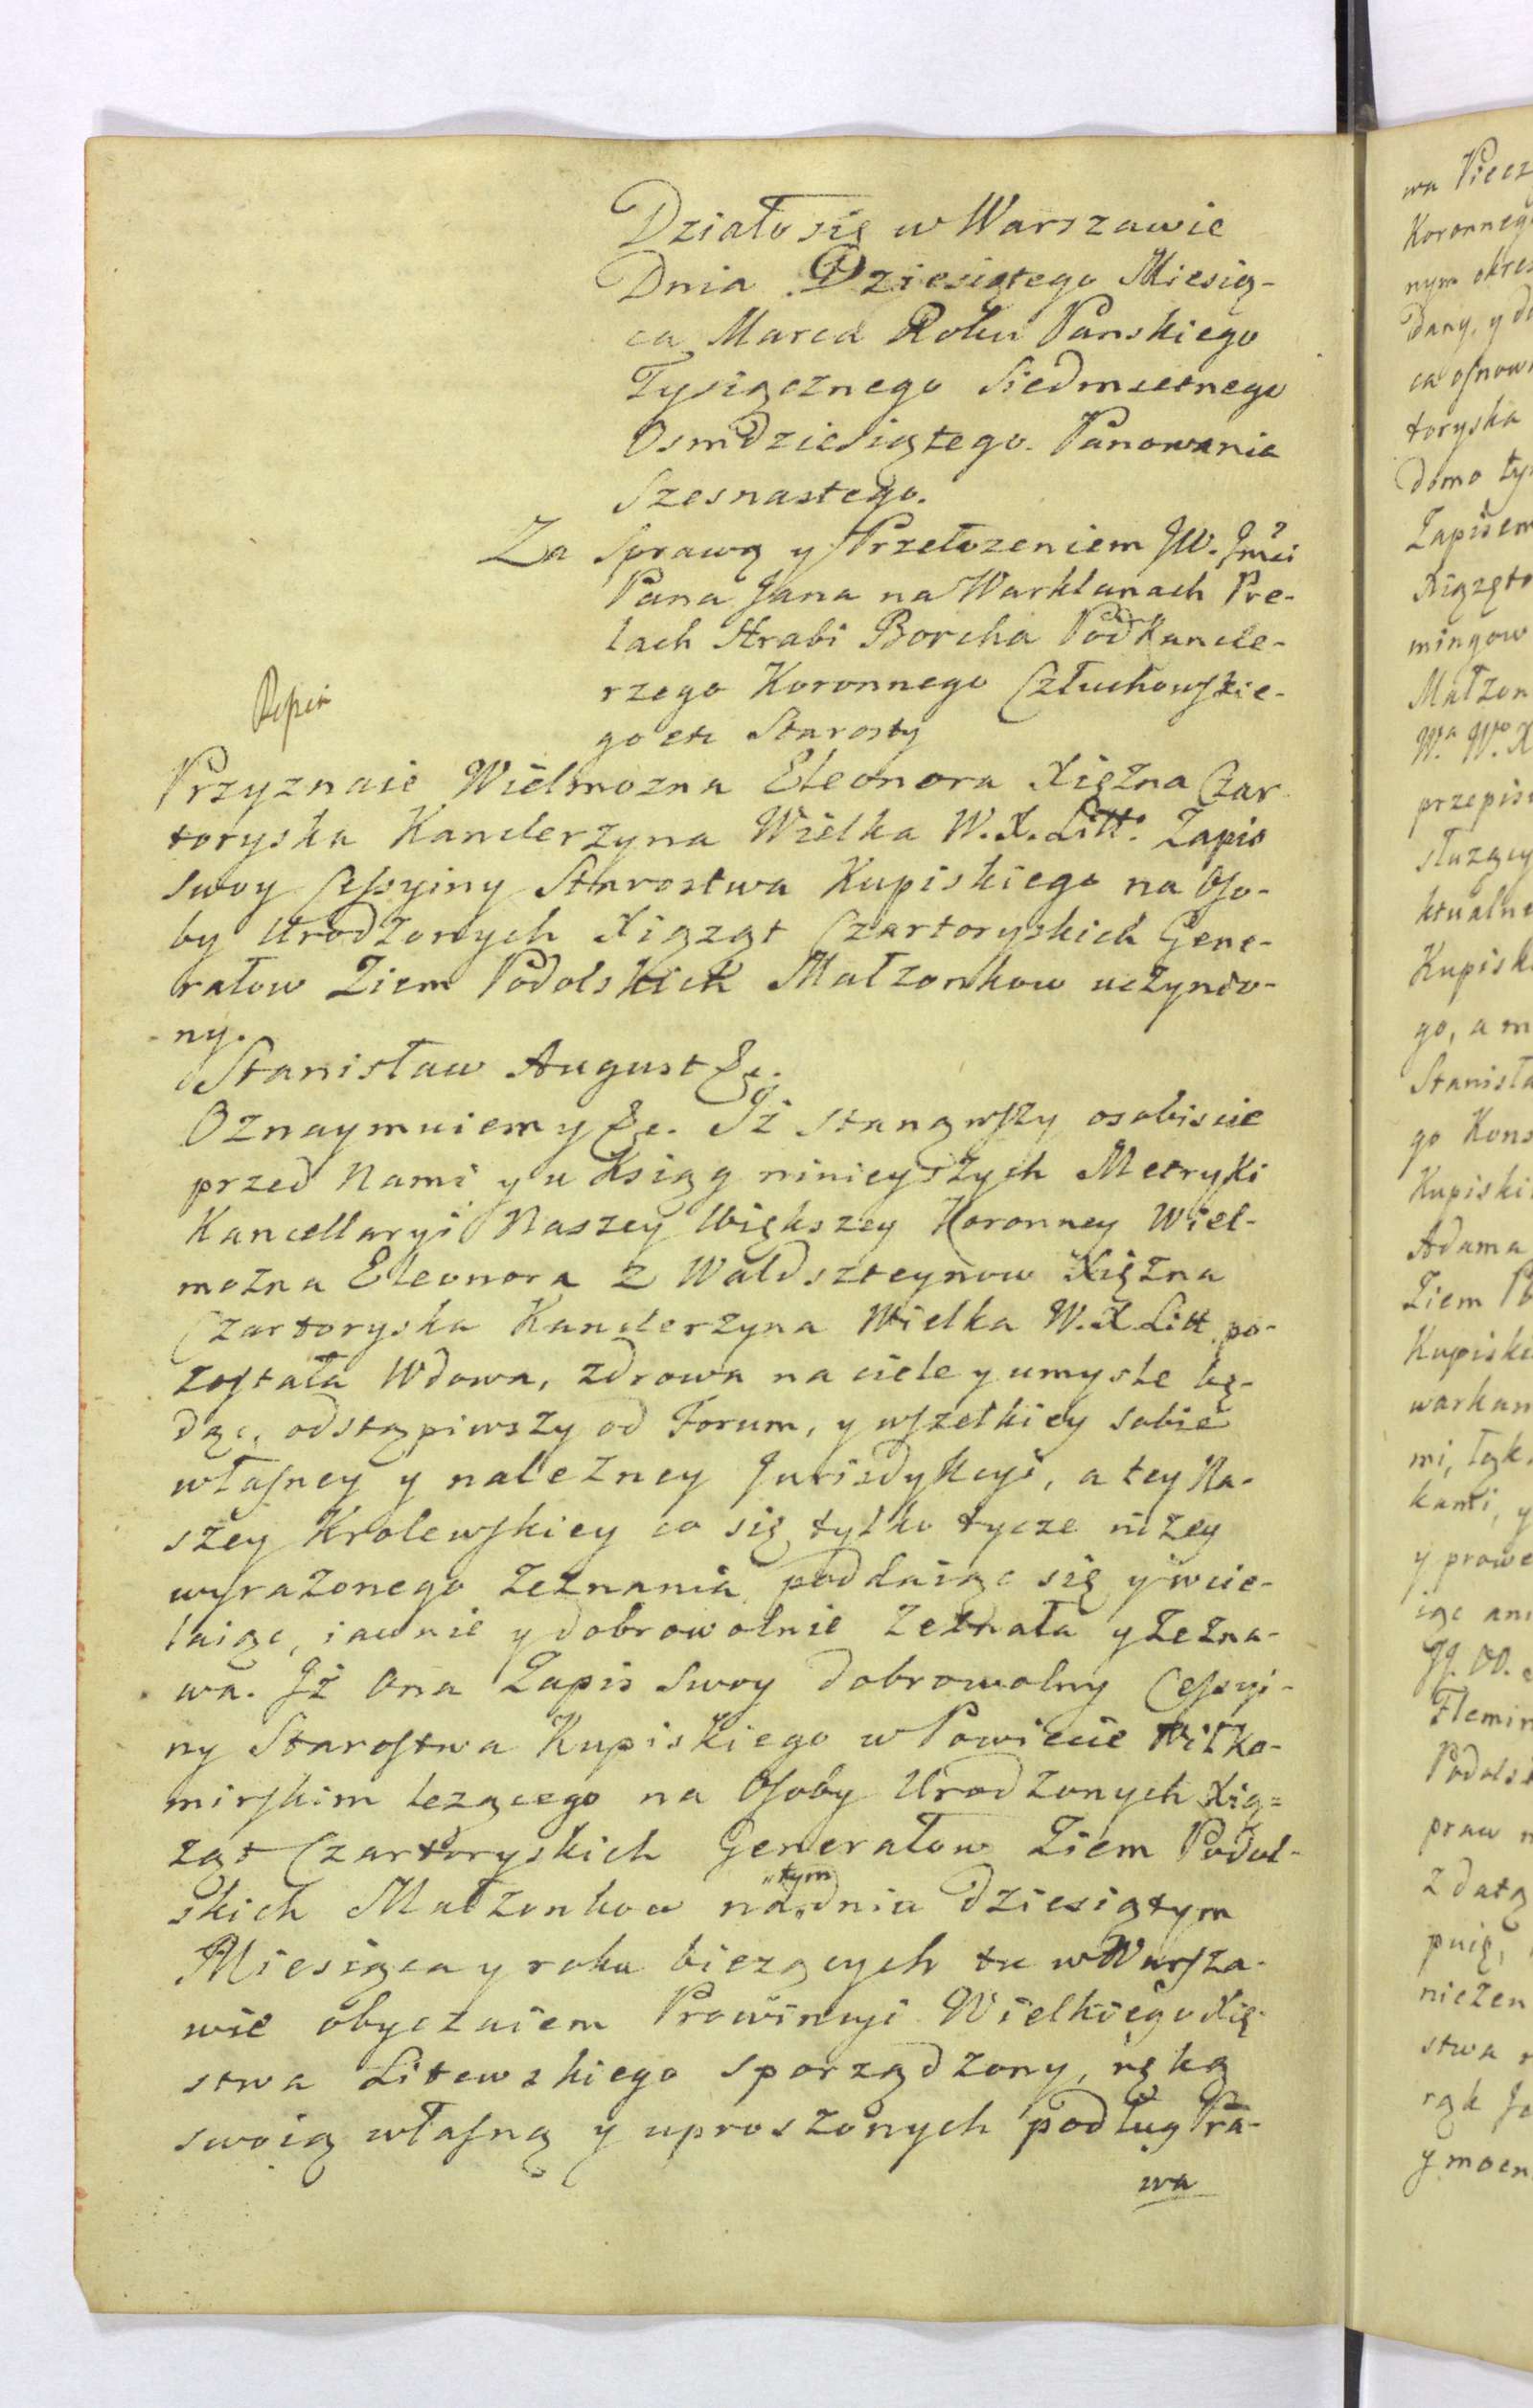 Działo się w Warszawie
Dnia Dziesiątego Miesią-
ca Marca Roku Panskiego
Tysiącznego Siedmsetnego
Osmdziesiątego. Panowania
Szesnastego.
Za Sprawą y Przełozeniem JW. Jmci
Pana Jana na Warklanach Pre-
lach Hrabi Borcha Podkancle-
rzego Koronnego Człuchowskie-
go etc Starosty
Przyznaie Wielmozna Eleonora Xiężna Czar-
toryska Kanclerzyna Wielka W. X. Litt: Zapis
swoy Cessyiny Starostwa Kupiskiego na Oso-
by Urodzonych Xiążąt Czartoryskich Gene-
rałow Ziem Podolskich Małzonkow uczynio-
ny.
Stanisław August &c.
Oznaymuiemy &c. Iż stanąwszy osobiscie
przed Nami y u Ksiąg ninieyszych Metryki
Kancellaryi Naszey Większey Koronney Wiel-
można Eleonora z Waldszteynow Xiężna
Czartoryska Kanclerzyna Wielka W. X. Litt. po-
została Wdowa, zdrowa na ciele y umysle bę-
dąc, odstąpiwszy od Forum, y wszelkiey sobie
własney y należney Jurisdykcyi, a tey Na-
szey Krolewskiey co się tylko tycze niżey
wyrażonego Zeznania poddaiąc się y wcie-
laiąc, iawnie y dobrowolnie Zeznała y Zezna-
wa. Iż Ona Zapis Swoy dobrowolny Cessyi-
ny Starostwa Kupiskiego w Powiecie Wiłko-
mirskim lezącego na Osoby Urodzonych Xią=
ząt Czartoryskich Generałow Ziem Podol-
skich Małzonkow na "tym" dniu dziesiątym
Miesiąca y roku biezących tu w Warsza-
wie obyczaiem Prowincyi Wielkiego Xię-
stwa Litewskiego sporządzony, ręką
swoią własną y uproszonych podług Pra-
wa